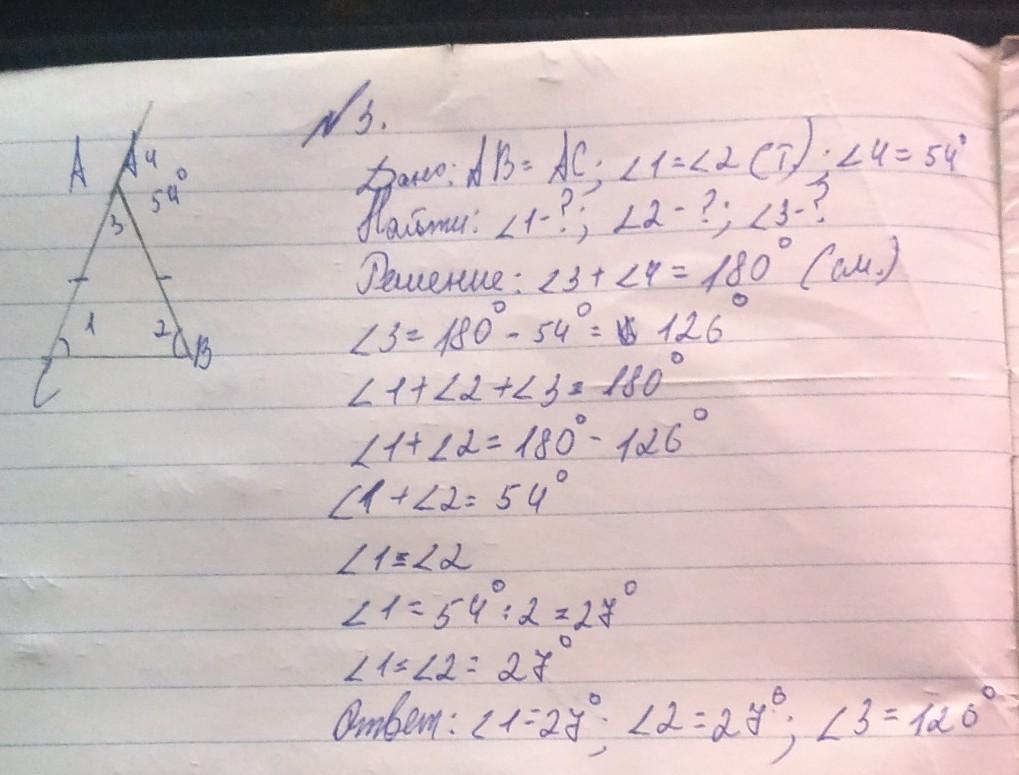 №3.
A A 4
54°
3
1 2
B
C
Дано: AB = AC; ∠1=∠2 (T); ∠4 = 54°
Найти: ∠1-?; ∠2-?; ∠3-?
Решение: ∠3+∠4 = 180° (см.)
∠3= 180° - 54° = 126°
∠1+∠2+∠3= 180°
∠1+∠2= 180° - 126°
∠1+∠2= 54°
∠1=∠2
∠1= 54° : 2 =27°
∠1=∠2= 27°
Ответ: ∠1=27°; ∠2=27°; ∠3=126°